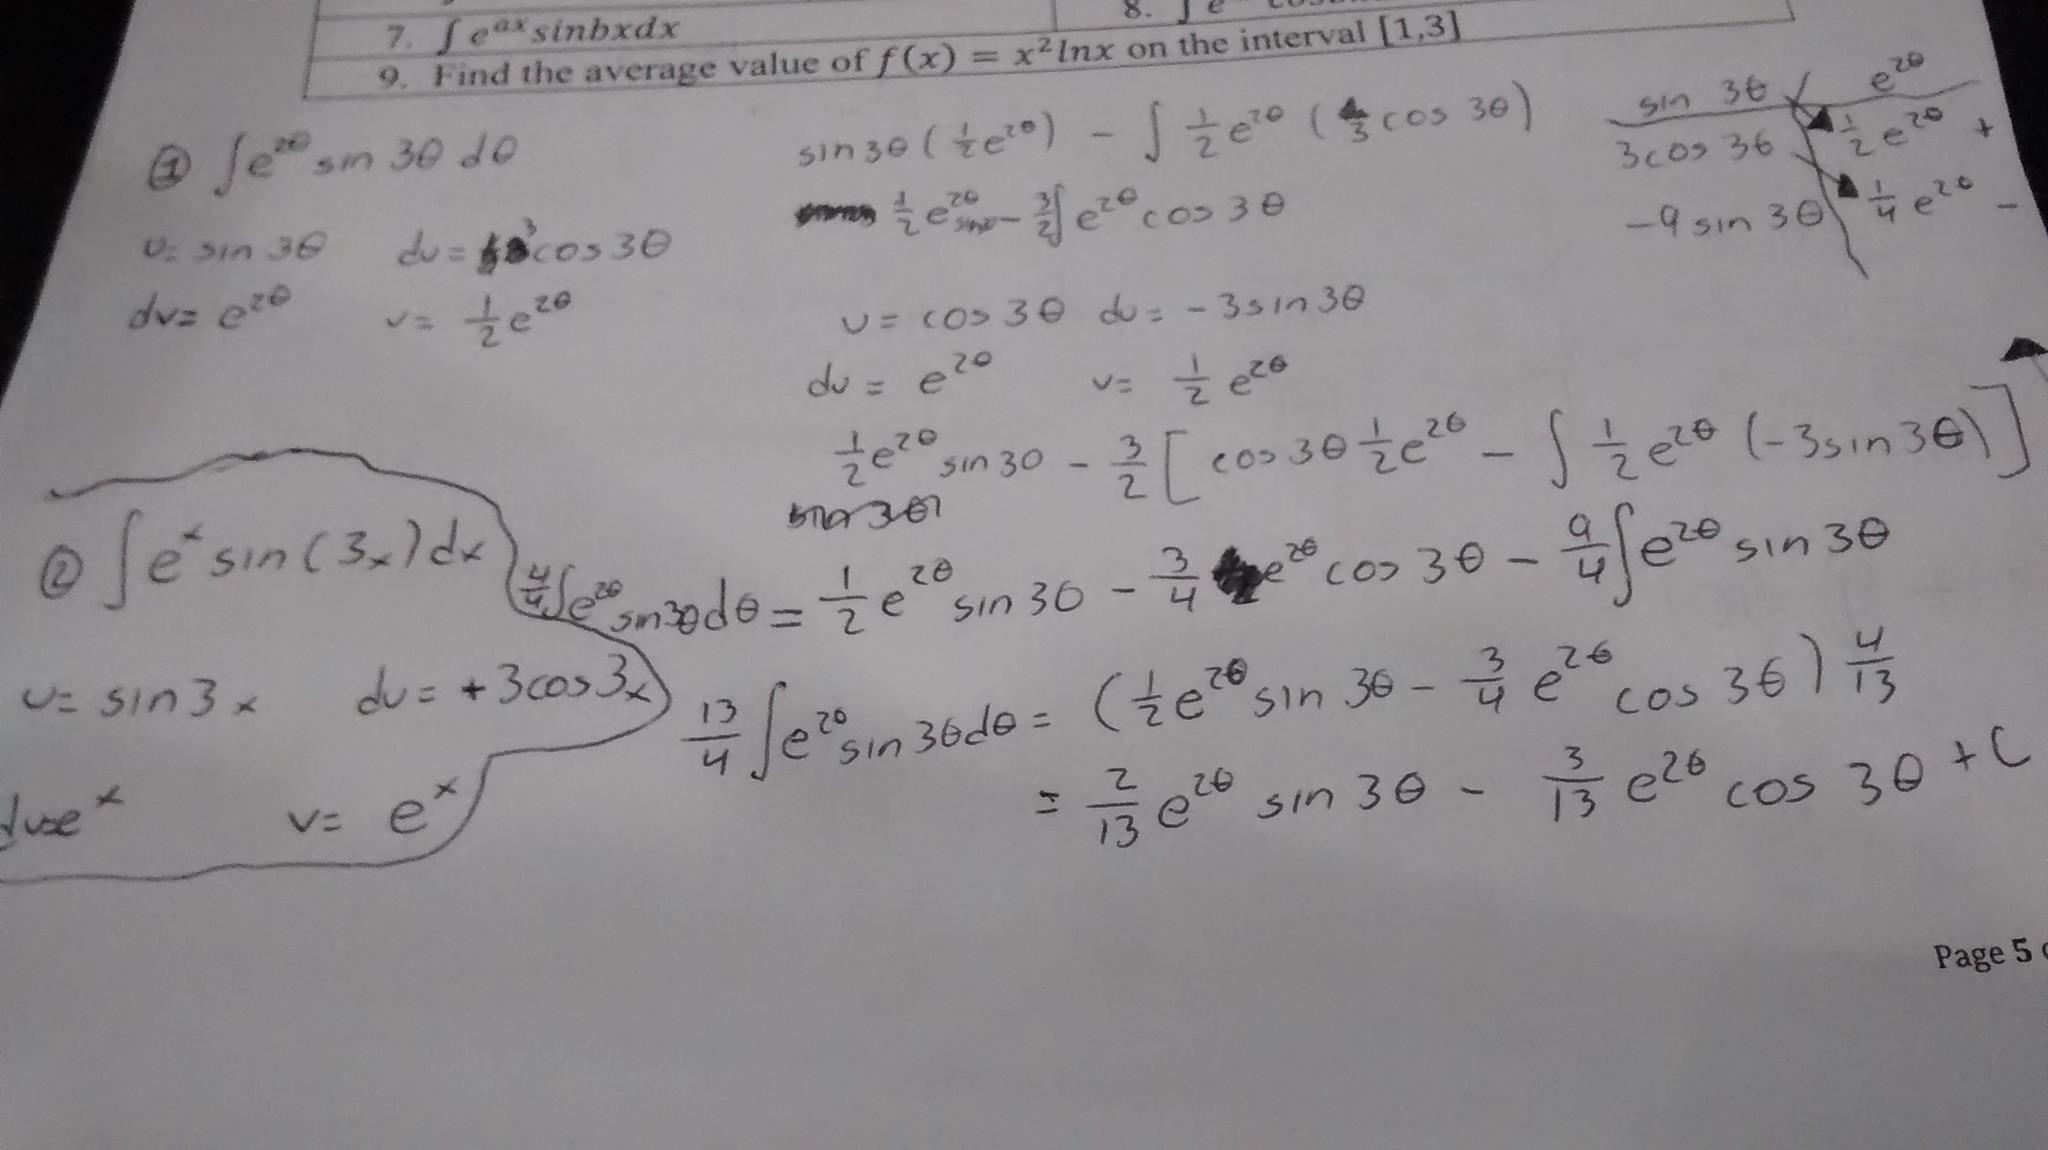 7. ∫e^{ax}sinbxdx
8. ∫e
9. Find the average value of f(x) = x²lnx on the interval [1,3]
① ∫e^{2θ} sin 3θ dθ
u= sin 3θ du= 3cos3θ
dv= e^{2θ} v= 1/2 e^{2θ}
sin3θ(1/2 e^{2θ}) - ∫ 1/2 e^{2θ} (3 cos 3θ)
1/2 e^{2θ} sin3θ - 3/2 ∫e^{2θ} cos 3θ
u= cos 3θ du= -3sin3θ
dv= e^{2θ} v= 1/2 e^{2θ}
1/2 e^{2θ} sin3θ - 3/2 [cos3θ 1/2 e^{2θ} - ∫ 1/2 e^{2θ} (-3sin3θ)]
4/4 ∫e^{2θ} sin3θdθ = 1/2 e^{2θ} sin3θ - 3/4 e^{2θ} cos 3θ - 9/4 ∫e^{2θ} sin 3θ
13/4 ∫e^{2θ} sin3θdθ = (1/2 e^{2θ} sin 3θ - 3/4 e^{2θ} cos 3θ) 4/13
= 2/13 e^{2θ} sin 3θ - 3/13 e^{2θ} cos 3θ + C
sin 3θ e^{2θ}
3cos 3θ 1/2 e^{2θ} +
-9 sin 3θ 1/4 e^{2θ} -
② ∫e^x sin(3x)dx
u= sin3x du= +3cos3x
dv=e^x v= e^x
Page 5